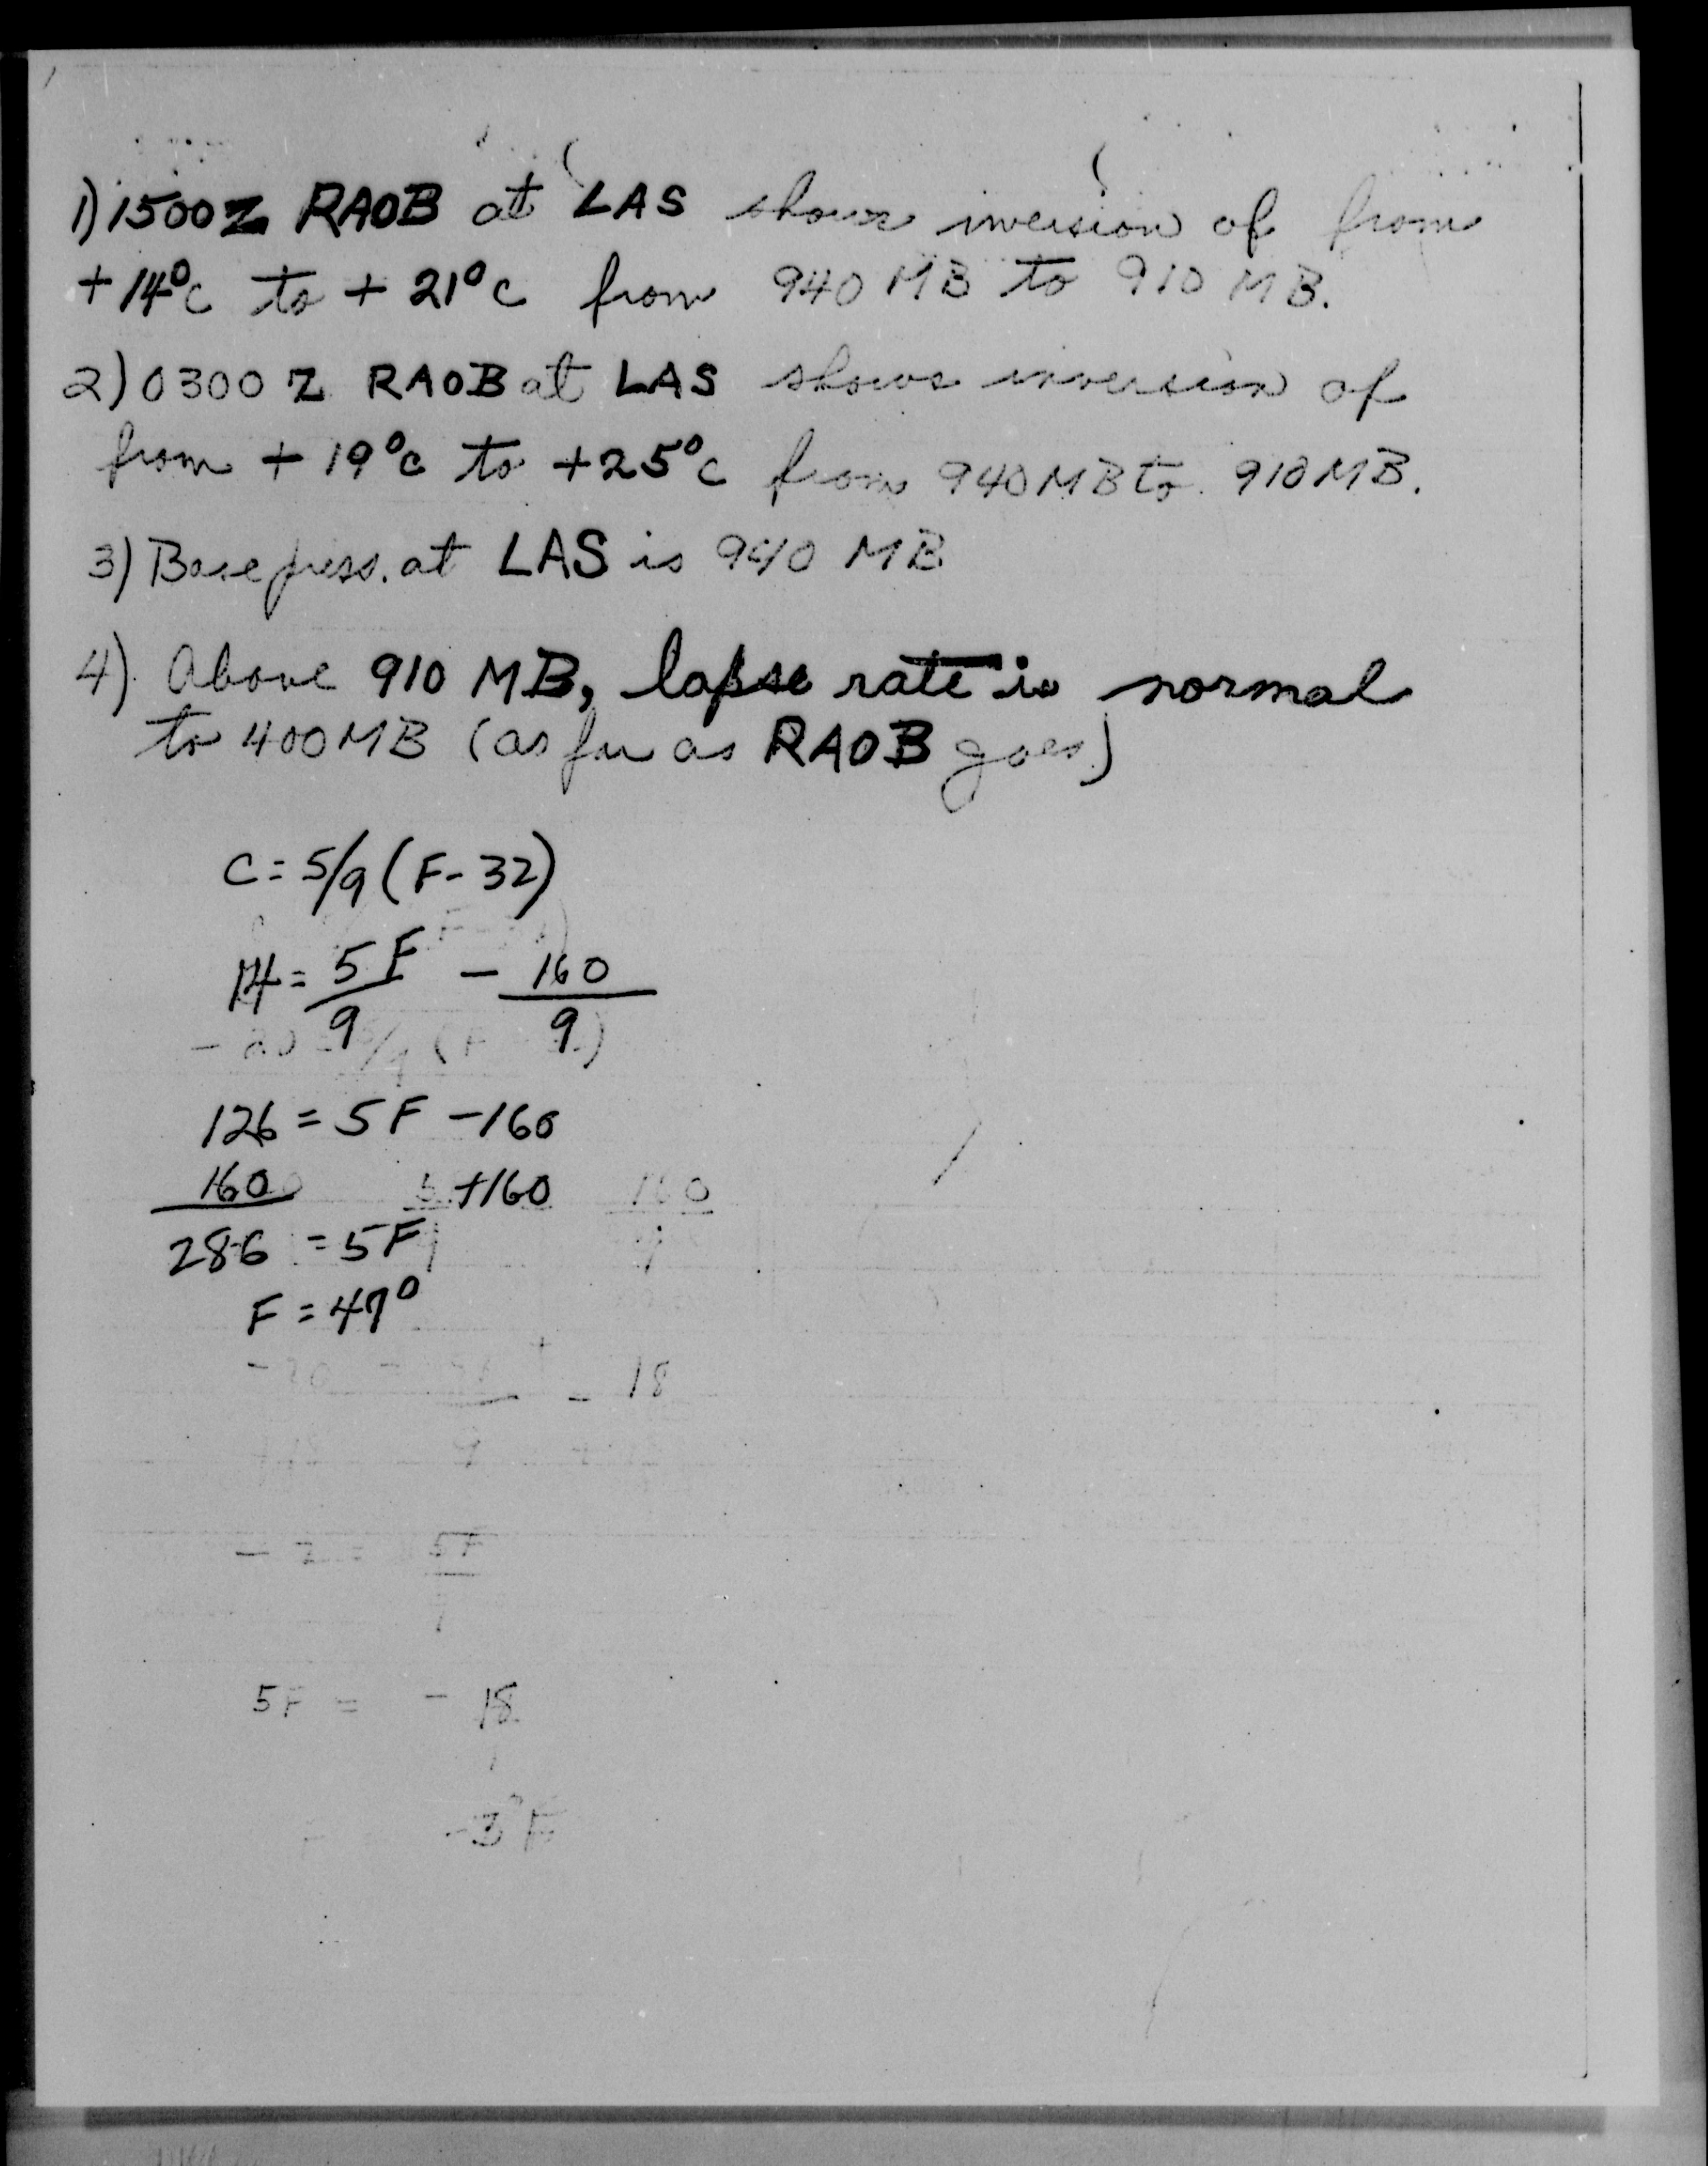 1) 1500Z RAOB at LAS shows inversion of from
+14°C to +21°C from 940 MB to 910 MB.
2) 0300 Z RAOB at LAS shows inversion of
from +19°C to +25°C from 940MB to 910MB.
3) Base press. at LAS is 940 MB
4) Above 910 MB, lapse rate is normal
to 400MB (as far as RAOB goes)
C = 5/9 (F - 32)
14 = 5F/9 - 160/9
126 = 5F - 160
160 +160
286 = 5F
F = 47°
- 18
5F = - 18
-3°F